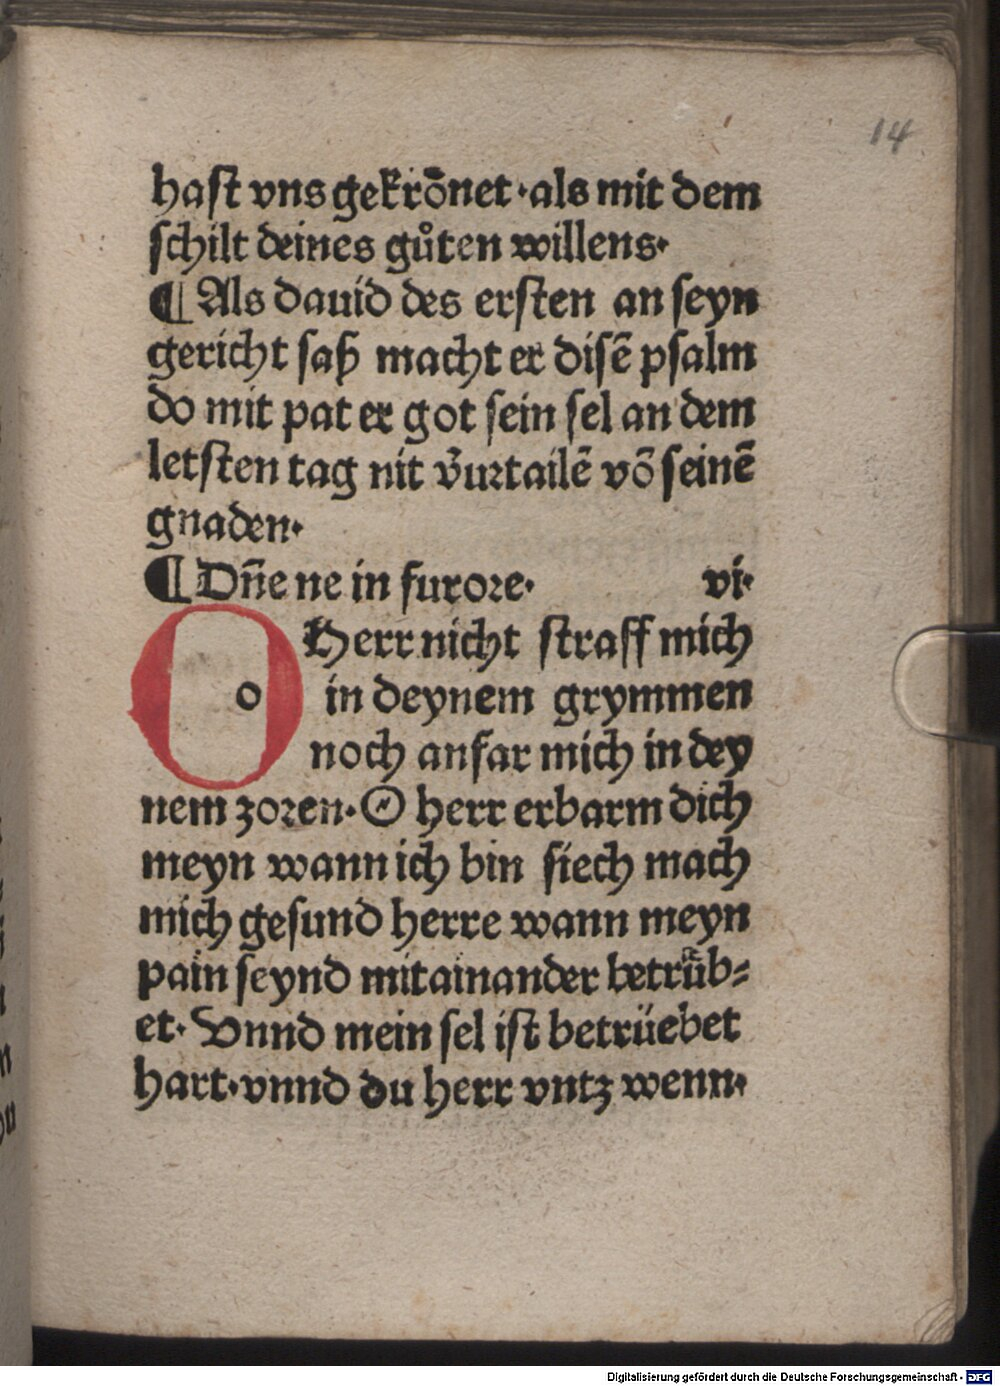 14
hast vns gekrōnet·als mit dem
schilt deines gůten willens·
¶ Als dauid des ersten an seyn
gericht saß macht er disē psalm
do mit pat er got sein sel an dem
letsten tag nit v̄urtailē vō seinē
gnaden·
¶ Dn̄e ne in furore· vi·
O o Herr nicht straff mich
in deynem grymmen
noch anfar mich in dey
nem zoren·O herr erbarm dich
meyn wann ich bin siech mach
mich gesund herre wann meyn
pain seynd mitainander betrüb⸗
et·Vnnd mein sel ist betrüebet
hart·vnnd du herr vntz wenn·
Digitalisierung gefördert durch die Deutsche Forschungsgemeinschaft - DFG